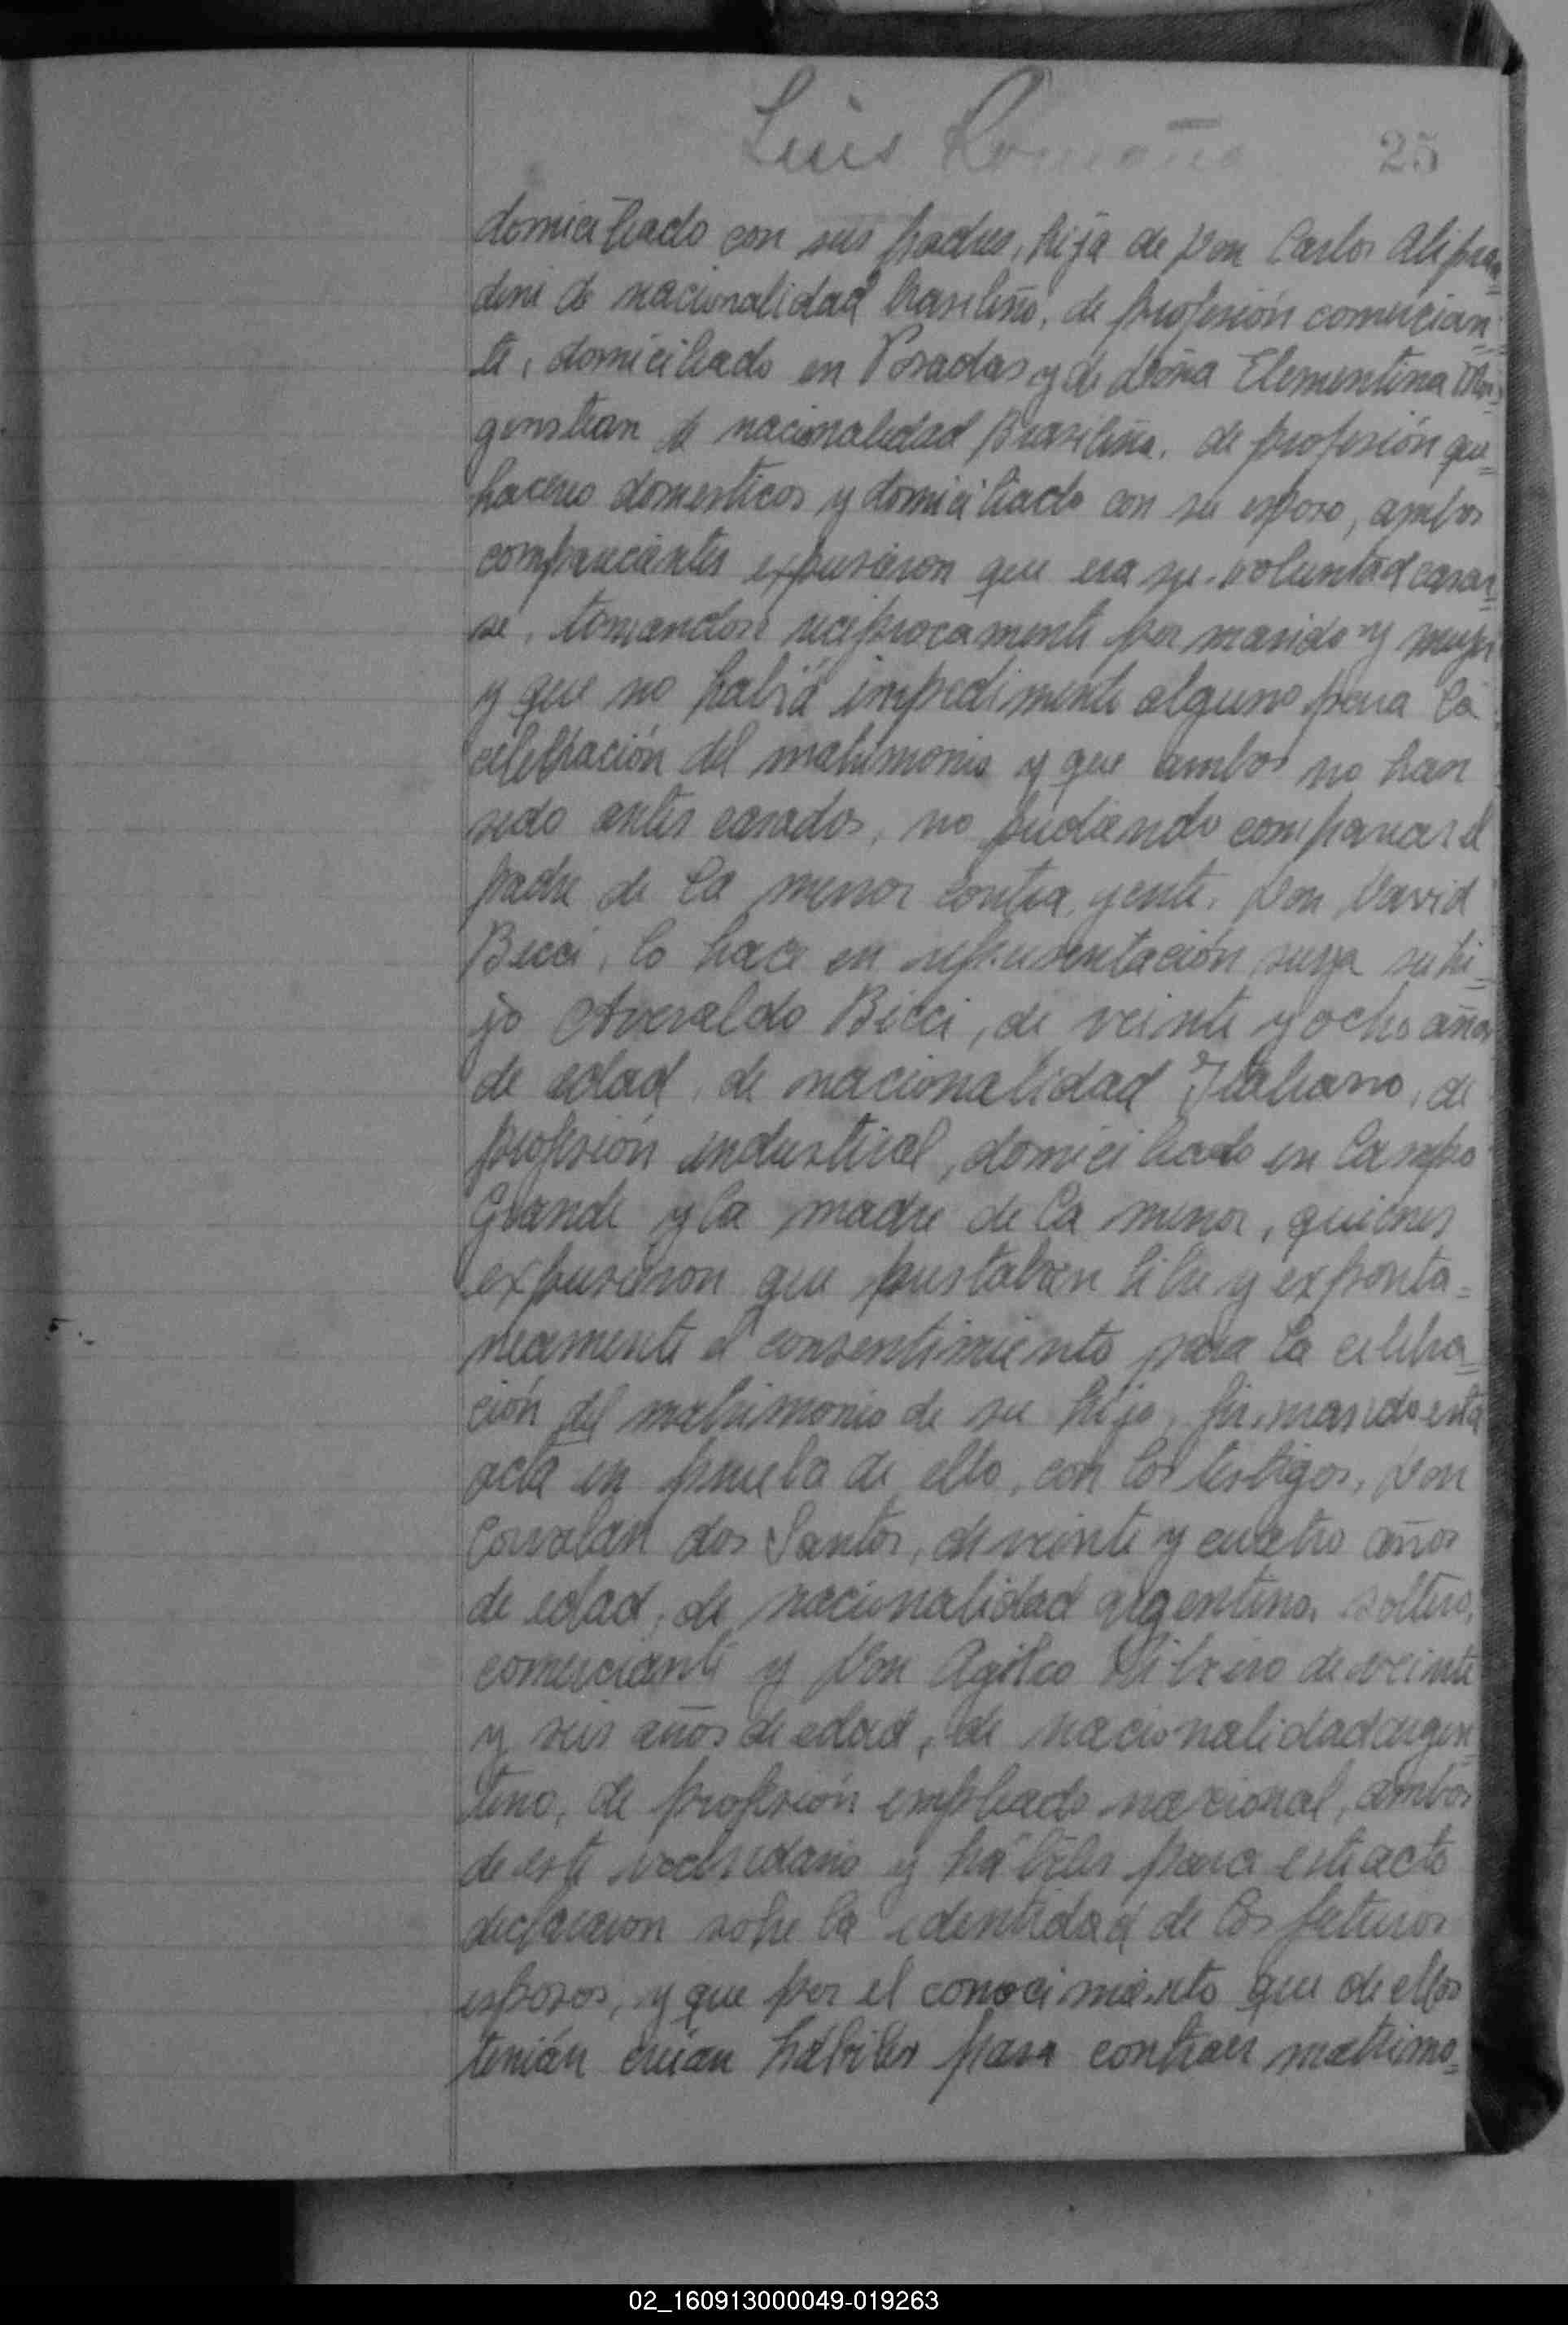 Luis Romaña
25
domiciliado con sus padres, hija de Don Carlos Alipran=
dini de nacionalidad brasileño, de profesión comercian=
te, domiciliado en Posadas y de doña Clementina
de nacionalidad Brasileña, de profesión que=
haceres domesticos y domiciliado con su esposo, ambos
comparecientes expusieron que era su voluntad casar=
se, tomandose reciprocamente por marido y mujer
y que no habiá impedimento alguno para la
celebración del matrimonio y que ambos no han
sido antes casados, no pudiendo comparecer el
padre de la menor contrayente, Don David
Becci, lo hace en representación suya su hi=
jo Averaldo Becci, de veinte y ocho años
de edad, de nacionalidad Italiano, de
profesión industrial, domiciliado en Campo
Grande y la madre de la menor, quienes
expusieron que prestaban libre y exponta=
neamente el consentimiento para la celebra=
ción del matrimonio de su hijo, firmando esta
acta en prueba de ello, con los testigos, Don
Corvalan dos Santos, de veinte y cuatro años
de edad, de nacionalidad argentino, soltero,
comerciante y Don Agileo Ribeiro de veinte
y seis años de edad, de nacionalidad argen=
tino, de profesión empleado nacional, ambos
de este vecindario y hábiles para este acto
declararon sobre la identidad de los futuros
esposos, y que por el conocimiento que de ellos
tenián creian hábiles para contraer matrimo=
02_160913000049-019263